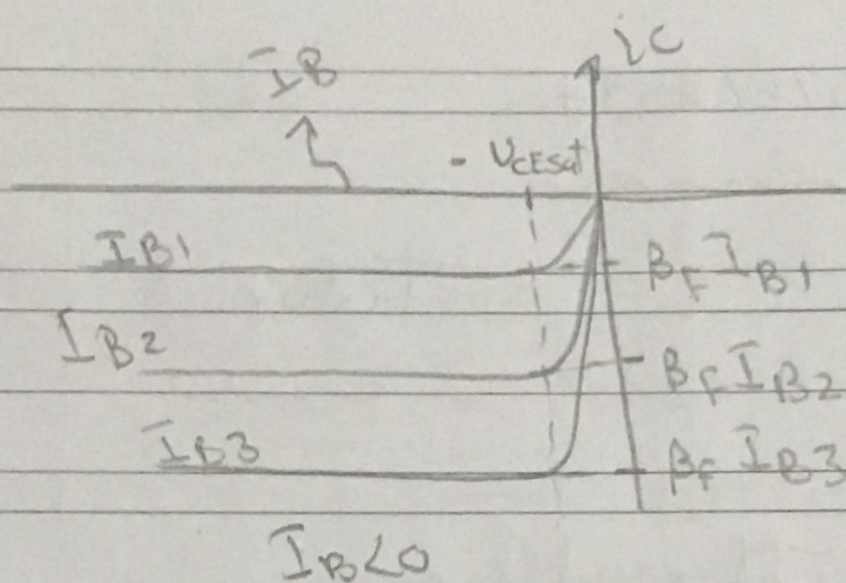 iC
IB
- VCESat
IB1
βF IB1
IB2
βF IB2
IB3
βF IB3
IB<0